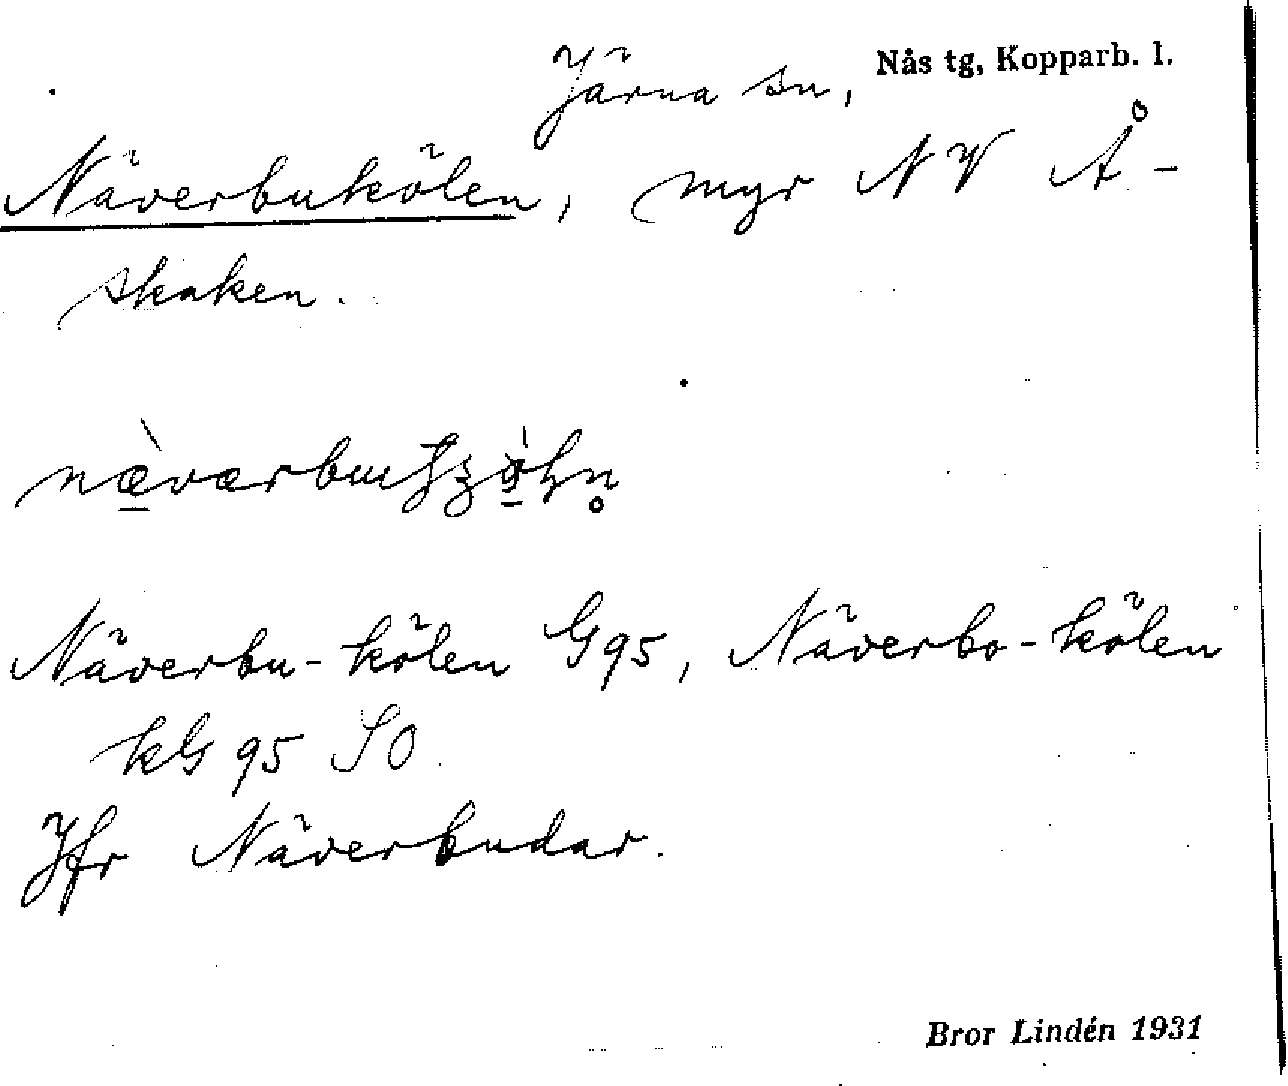 Järna sn, Nås tg, Kopparb. l.
Näverbukölen, myr NV Å-
skaken.
Näverbu-kölen G95, Näverbo-kölen
kG 95 SO.
Jfr Näverbudar.
Bror Lindén 1931